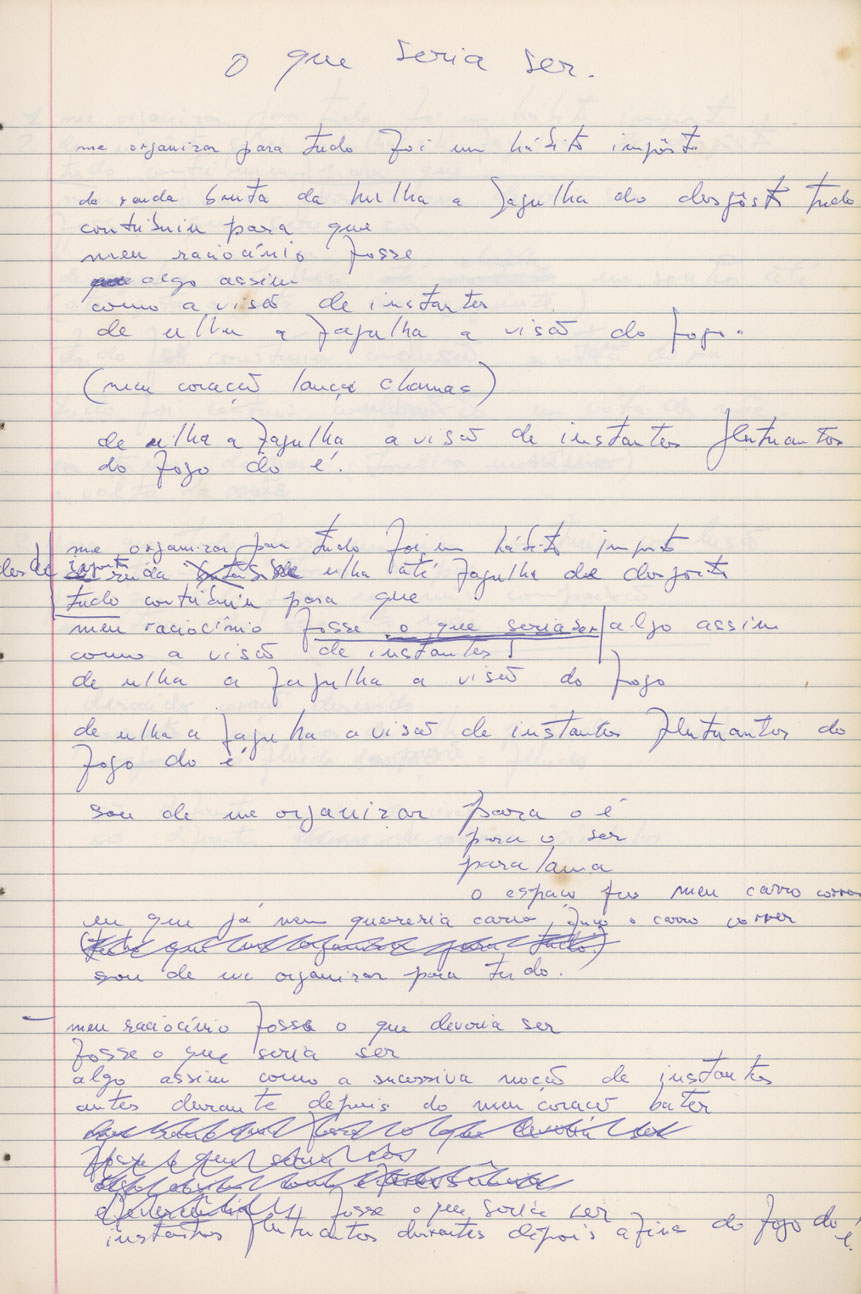 o que seria ser.
me organizar para tudo foi um hábito impôsto
da senda bruta da hulha a fagulha do desgôsto tudo
contribuiu para que
meu raciocínio fosse
algo assim
como a visão de instantes
de ulha a fagulha a visão do fogo.
(meu coração lança chamas)
de ulha a fagulha a visão de instantes flutuantes
do fogo do é.
me organizar para tudo foi um hábito imposto
desde ulha até fagulha de desgôsto
tudo contribuiu para que
meu raciocínio fosse o que seria ser algo assim
como a visão de instantes
de ulha a fagulha a visão do fogo
de ulha a fagulha a visão de instantes flutuantes do
fogo do é
sou de me organizar para o é
para o ser
para lama
o espaço pro meu carro correr
eu que já nem quereria carro, faço o carro correr
sou de me organizar para tudo.
meu raciocínio fosse o que deveria ser
fosse o que seria ser
algo assim como a sucessiva noção de instantes
antes durante depois do meu coração bater
fosse o que seria ser
fosse o que seria ser
instantes flutuantes durantes depois afins do fogo do é.